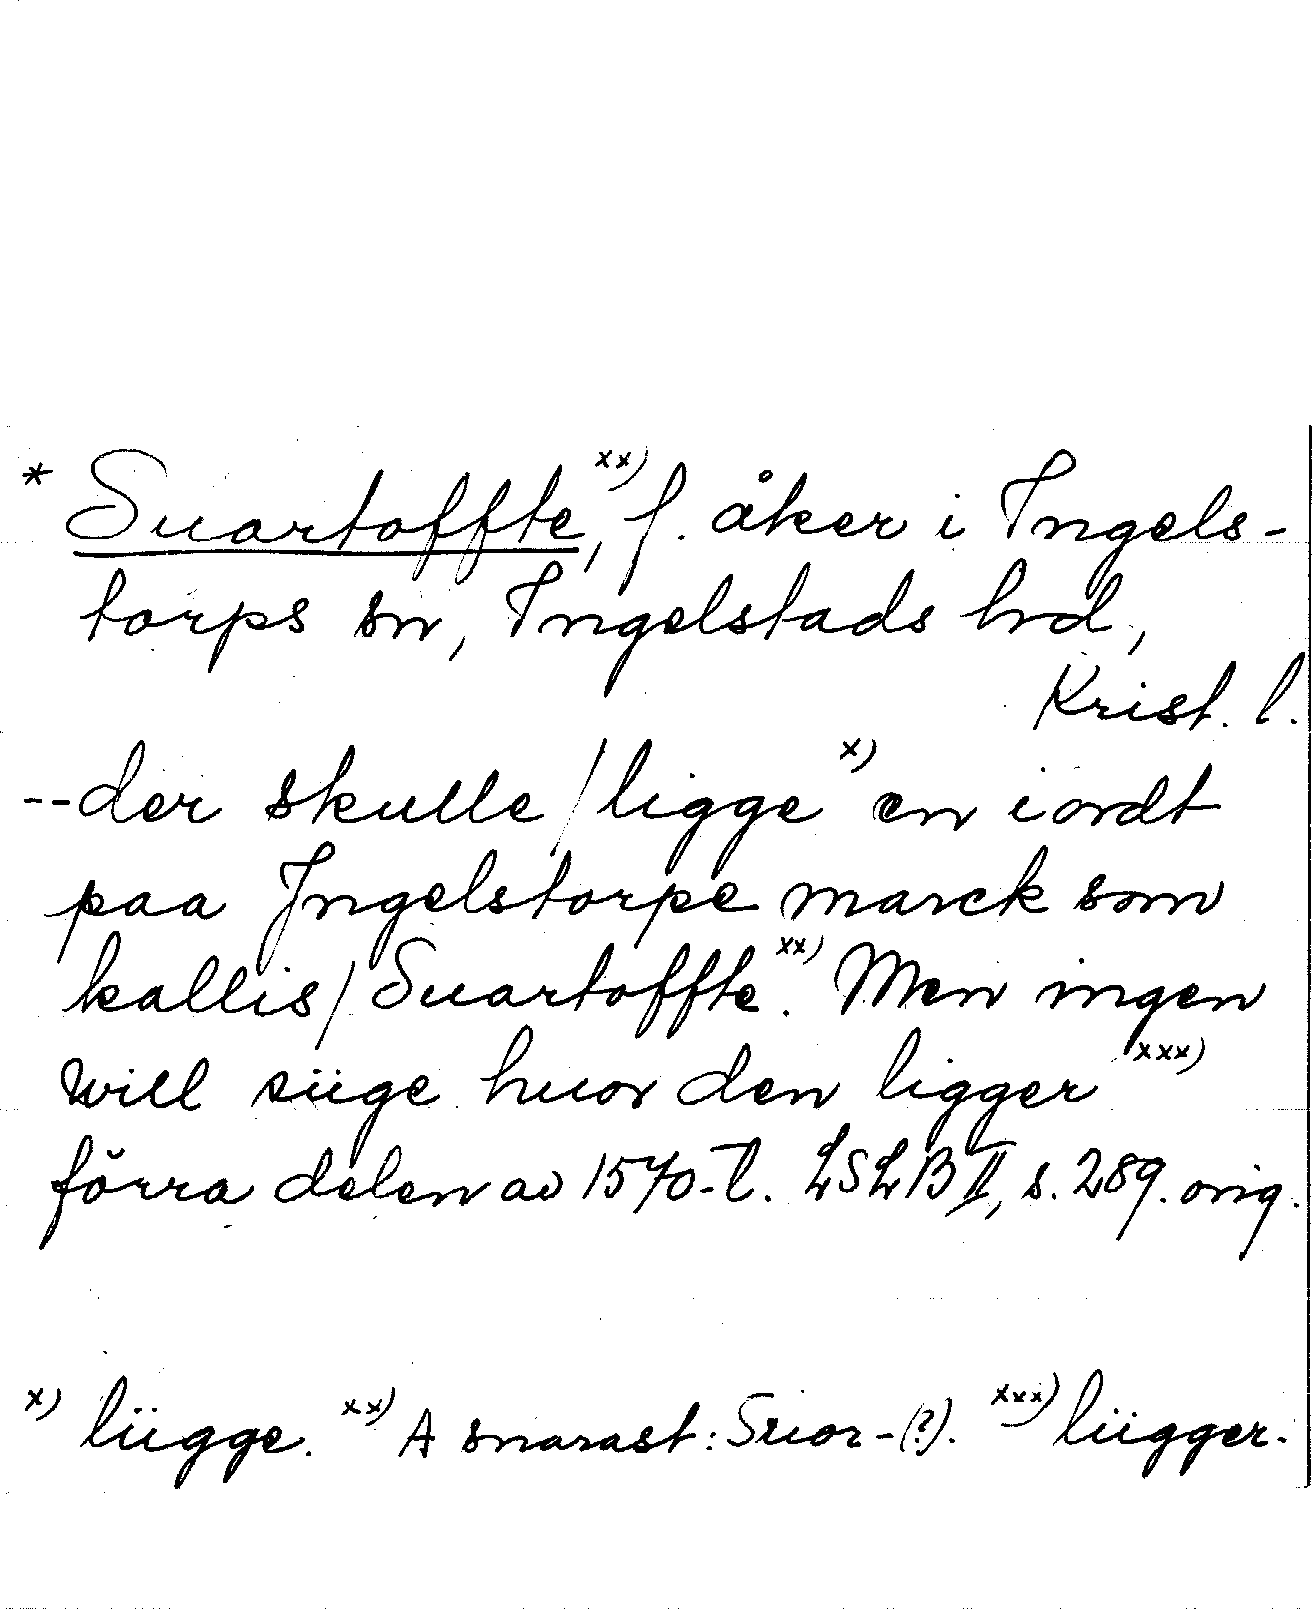 * Suartoffte,xx) f. åker i Ingels-
torps sn, Ingelstads hrd,
Krist. l.
--der skulle/ligge x) en iordt
paa Jngelstorpe marck som
kallis/Suartoffte.xx) Men ingen
will siige huor den ligger xxx)
förra delen av 1570-t. LSLB II, s. 289. orig.
x) liigge. xx) A snarast: Suor-(?). xxx) liigger.